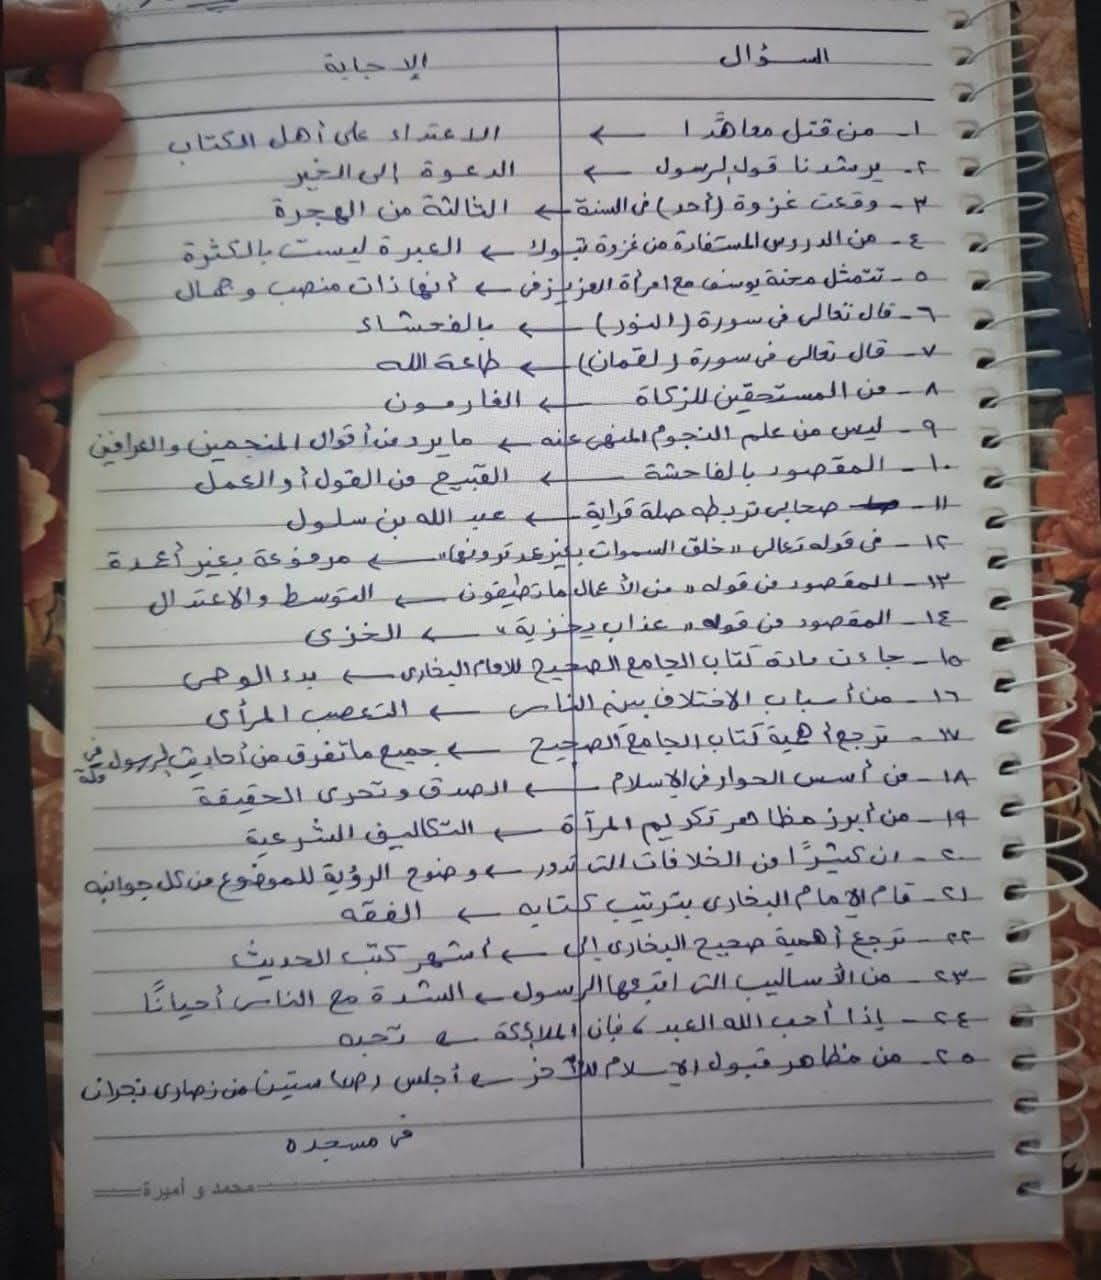 السؤال الإجابة
١- من قتل معاهدًا ← الاعتداء على أهل الكتاب
٢- يرشدنا قول الرسول ← الدعوة إلى الخير
٣- وقعت غزوة (أحد) فى السنة ← الثالثة من الهجرة
٤- من الدروس المستفادة من غزوة تبوك ← العبرة ليست بالكثرة
٥- تتمثل محنة يوسف مع امرأة العزيز فى ← أنها ذات منصب وجمال
٦- قال تعالى فى سورة (النور) ← بالفحشاء
٧- قال تعالى فى سورة (لقمان) ← طاعة الله
٨- من المستحقين للزكاة ← الغارمون
٩- ليس من علم النجوم المنهى عنه ← ما يرد من أقوال المنجمين والعرافين
١٠- المقصود بالفاحشة ← القبيح من القول أو العمل
١١- صحابى تربطه صلة قرابة ← عبد الله بن سلول
١٢- فى قوله تعالى "خلق السموات بغير عمد ترونها" ← مرفوعة بغير أعمدة
١٣- المقصود من قوله "من الأعمال ما تطيقون ← التوسط والاعتدال
١٤- المقصود من قوله "عذاب يخزيه" ← الخزى
١٥- جاءت مادة كتاب الجامع الصحيح للامام البخارى ← بدء الوحى
١٦- من أسباب الاختلاف بين الناس ← التعصب المرأى
١٧- ترجع أهمية كتاب الجامع الصحيح ← جميع ما تفرق من أحاديث الرسول فى
١٨- من أسس الحوار فى الاسلام ← الصدق وتحرى الحقيقة
١٩- من أبرز مظاهر تكريم المرآة ← التكاليف الشرعية
٢٠- ان كثيرًا من الخلافات التى تدور ← وضوح الرؤية للموضوع من كل جوانبه
٢١- قام الإمام البخارى بترتيب كتابه ← الفقه
٢٢- ترجع أهمية صحيح البخارى إلى ← أشهر كتب الحديث
٢٣- من الأساليب التى اتبعها الرسول ← الشدة مع الناس أحيانًا
٢٤- إذا أحب الله العبد، فإن الملائكة ← تحبه
٢٥- من مظاهر قبول الإسلام للآخر ← أجلس ستين من نصارى نجران
فى مسجده
محمد و أميرة